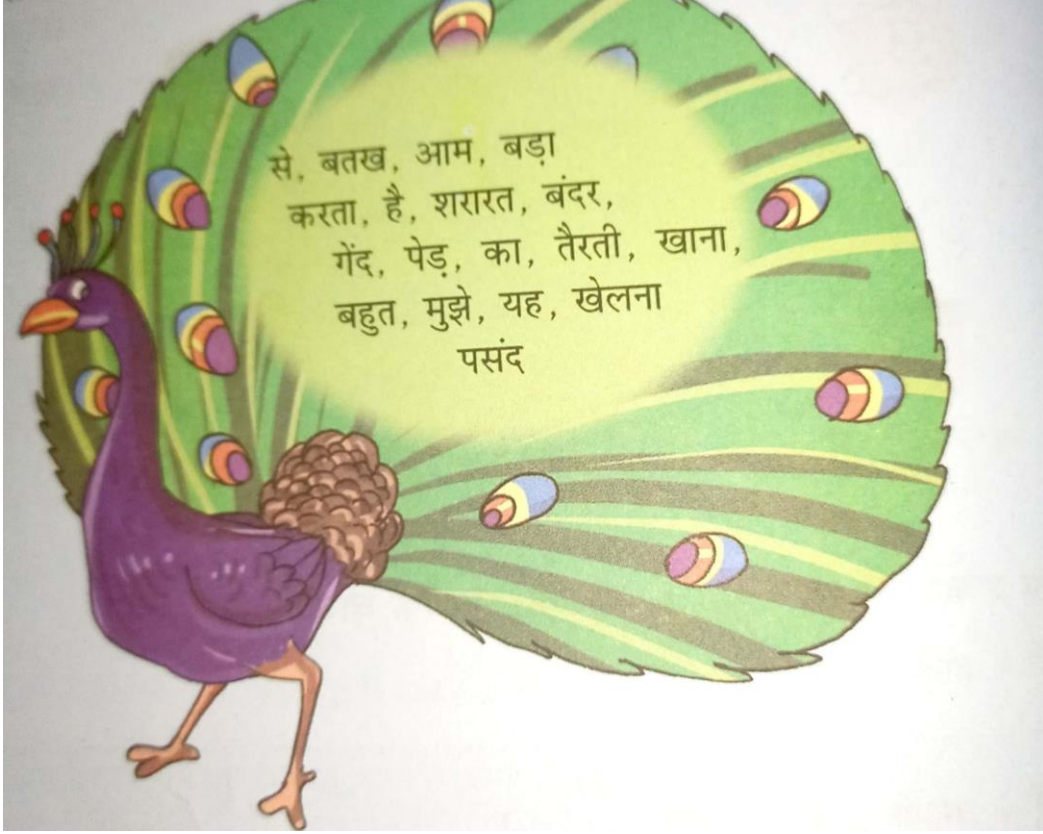 से, बतख, आम, बड़ा
करता, है, शरारत, बंदर,
गेंद, पेड़, का, तैरती, खाना,
बहुत, मुझे, यह, खेलना
पसंद